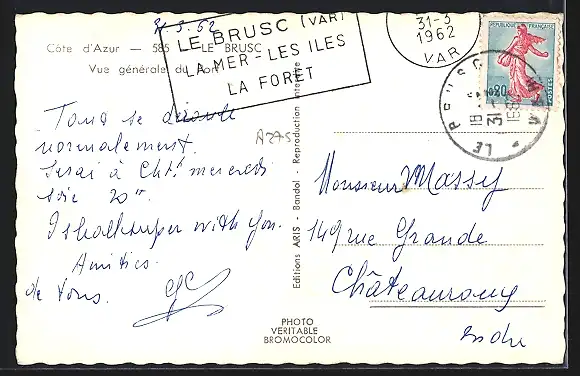 31-3-62
Côte d'Azur — 585 — LE BRUSC
Vue générale du Port
LE BRUSC (VAR)
LA MER-LES ILES
LA FORET
31-3
1962
VAR
REPUBLIQUE FRANÇAISE
0,20
POSTES
LE BRUSC
18
31-3
VAR
Tout se déroule
normalement.
Serai à Cht mercredi
soir 20h
I shall super with you.
Amitiés
de tous.
A275
Editions ARIS - Bandol - Reproduction interdite
Monsieur Massy
149 rue Grande
Châteauroux
Indre
PHOTO
VERITABLE
BROMOCOLOR